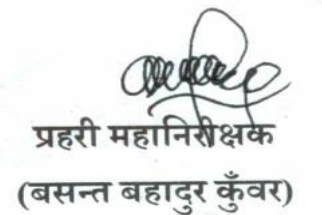 प्रहरी महानिरीक्षक
(बसन्त बहादुर कुँवर)